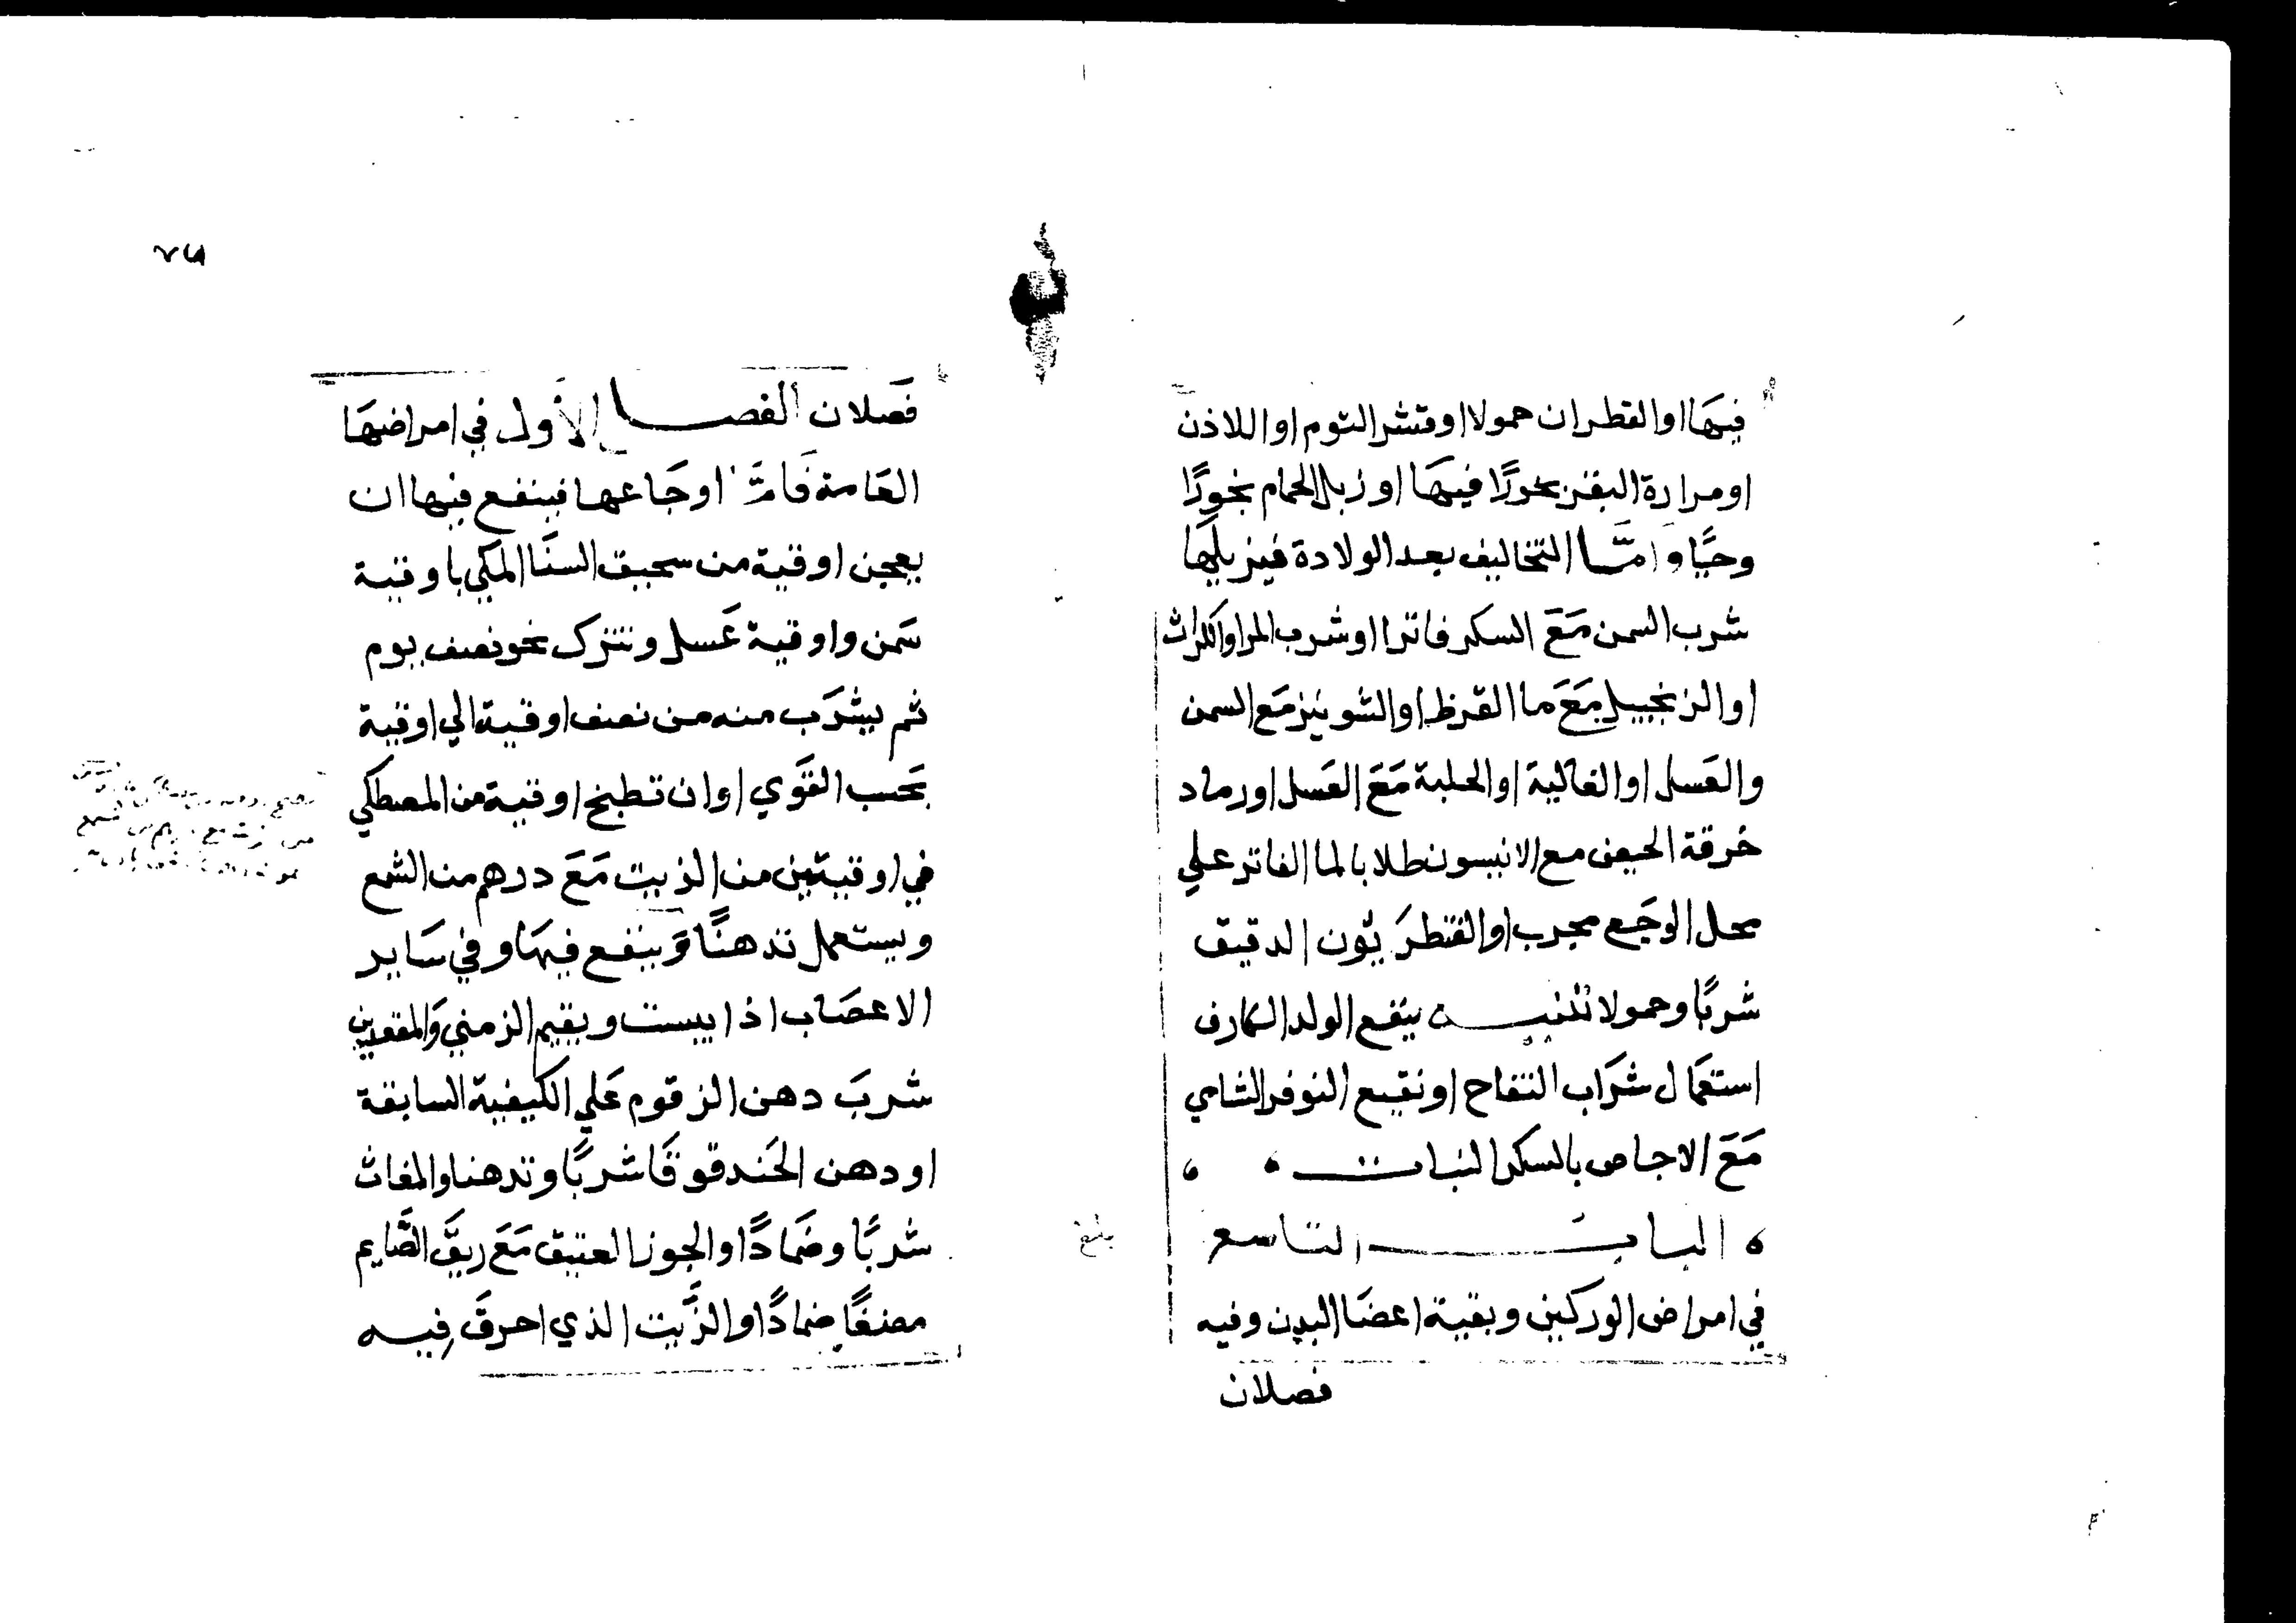 فيَها او القطران حمولا او قشر الثوم او اللاذن
او مرارة البقر بخورًا فيهَا او زبل الحمام بخورًا
وحيًّا وامَّا التخاليف بعد الولادة فيزيلها
شرب السمن مَعَ السكر فاترا او شرب المر او الكراث
او الزنجبيل مَعَ ما القرظ او الشونيز مَع السمن
والعَسل او الغالية او الحلبة مَعَ العَسل او رماد
خرقة الحيض مع الانيسون طلا بالما الفاتر علي
محل الوجَع مجرب او القنطرَيون الدقيق
شربًا وحمولا تنبيه ينفع الولد
استعمَال شرَاب التفاح او نقيع النوفر الشامي
مَعَ الاجاص بالسكر النبات
البابَ التاسع
في امراض الوركين وبقية اعضَا البدن وفيه
فصلان
بلغ
٧٥
فَصلان الفصل الأول في امراضهَا
العَامة فَامَّا اوجَاعها فينفع فيها ان
يعجن اوقية من سحيق السنَا المكي باوقية
سَمن واوقية عَسل وتترك نحو نصف يوم
ثم يشرَب منه من نصف اوقية الي اوقية
بحَسب القوَي او ان تطبخ اوقية من المصطكي
في اوقيتين من الزيت مَعَ درهم من الشمع
ويستعمل تدهنًا وَينفع فيهَا وفي سَاير
الاعصَاب اذا يبست ويقيم الزمني وَالمقعدين
شربَ دهن الزقوم عَلي الكيفية السابقة
او دهن الحَندقوقَا شربًا وتدهنا والمغاث
شربًا وضمَادًا والجوز العتيق مَعَ ريق الصَّايم
مضغًا ضمادًا والزَّيت الذي احرقَ فيه